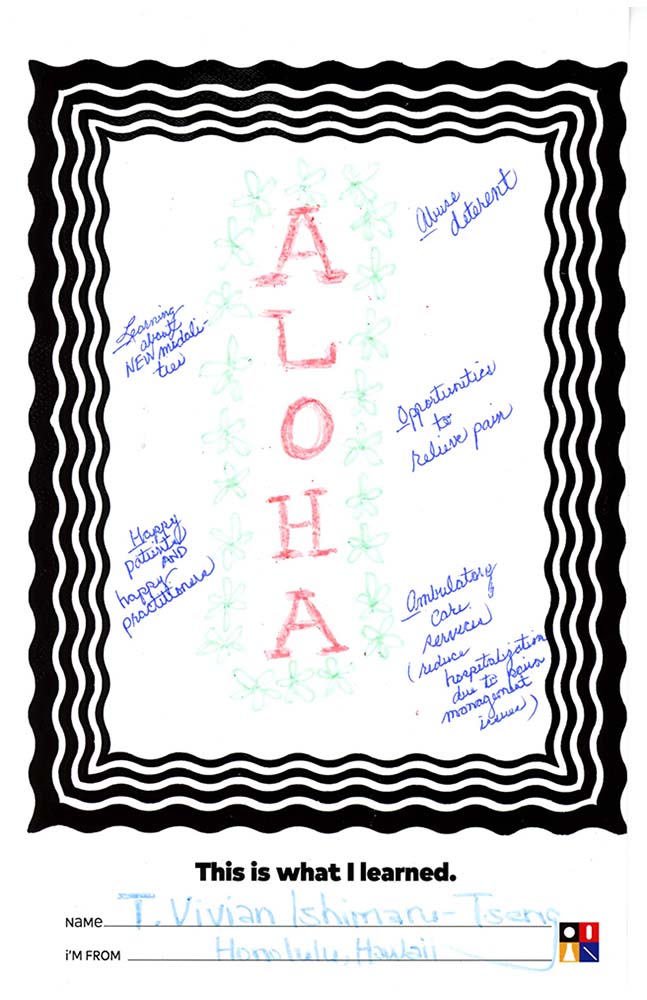 A
L
O
H
A
Abuse
deterent
Learning
about
NEW modali-
ties
Opportunities
to
relieve pain
Happy
patients
AND
happy
practitioners
Ambulatory
care
services
(reduce
hospitalization
due to pain
management
issues)
This is what I learned.
NAMe T. Vivian Ishimaru-Tseng
i'M FROM Honolulu, Hawaii